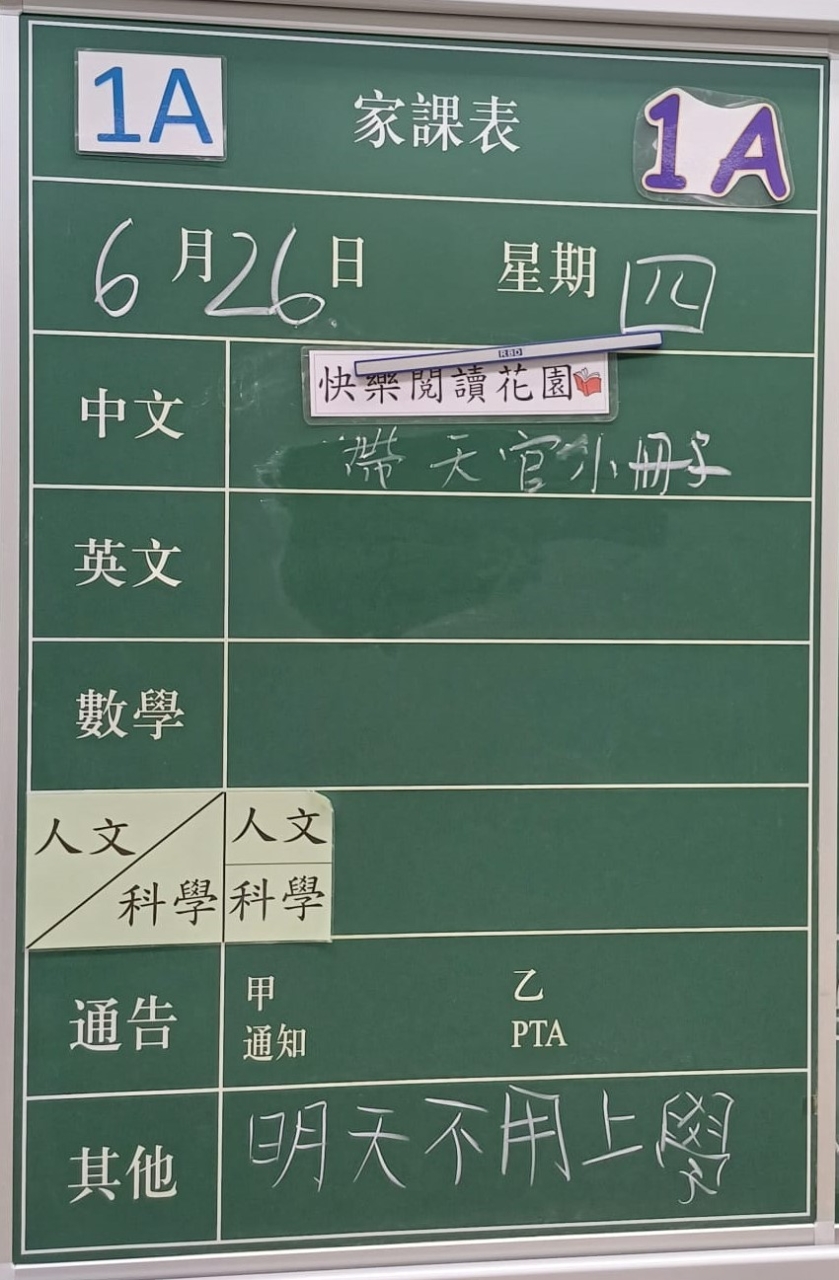 1A 家課表 1A
6月26日 星期四
RBD
中文 快樂閱讀花園
帶天官小冊子
英文
數學
人文 人文
科學 科學
通告 甲 乙
通知 PTA
其他 明天不用上學